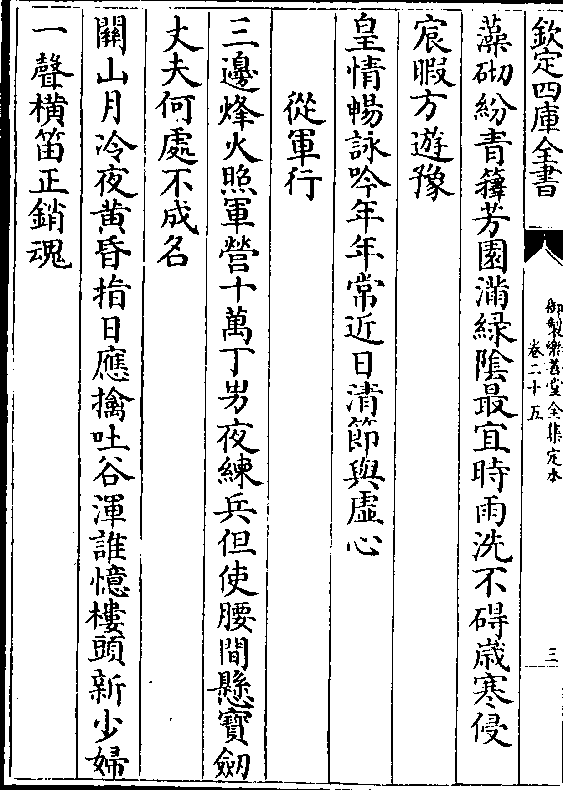 欽定四庫全書
御製樂善堂全集定本
卷二十五
三
藻砌紛青籜芳園滿綠陰最宜時雨洗不碍歲寒侵
宸暇方遊豫
皇情暢詠吟年年常近日清節與虛心
從軍行
三邊烽火照軍營十萬丁男夜練兵但使腰間懸寶劒
丈夫何處不成名
關山月冷夜黄昏指日應擒吐谷渾誰憶樓頭新少婦
一聲橫笛正銷魂